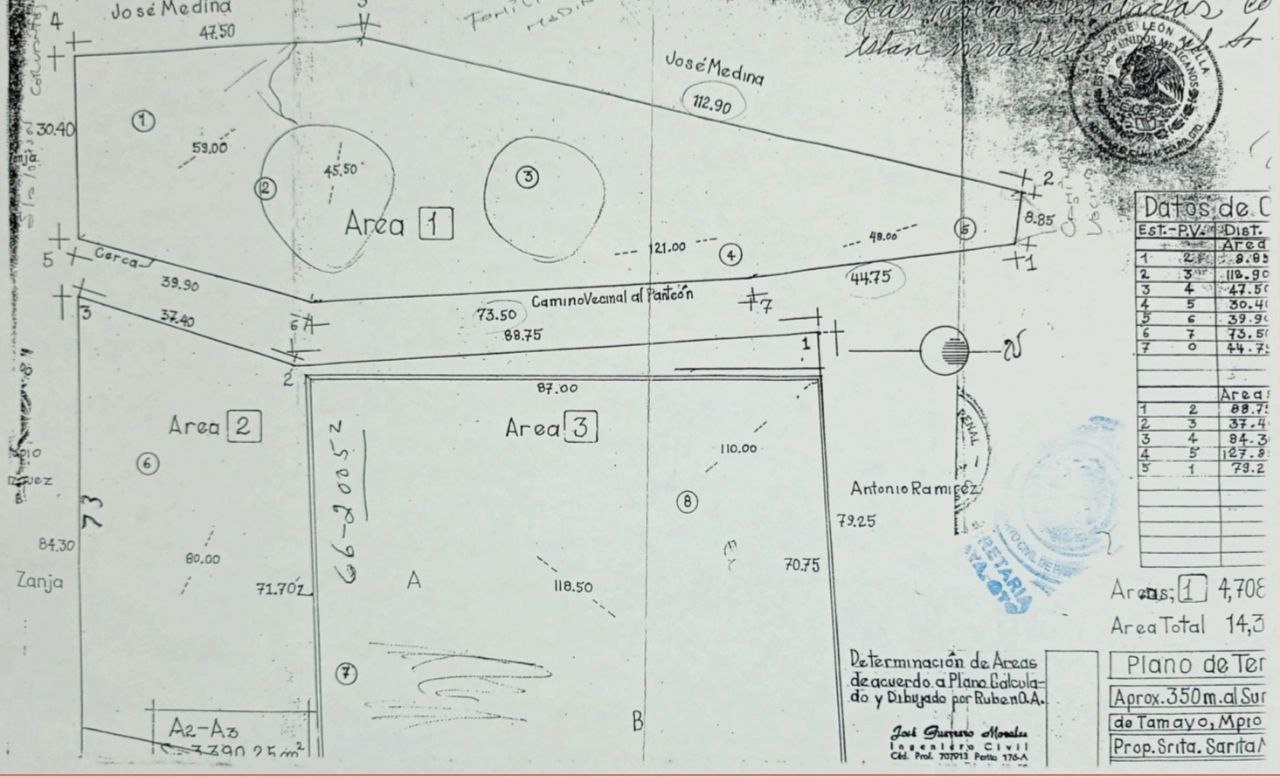 4
José Medina
47.50
3
Las
están
JORGE LEÓN
ESTADOS UNIDOS MEXICANOS
José Medina
112.90
30.40
1
59.00
2
45.50
3
Area 1
2
8.85
1
5
4
121.00
48.00
5
Cerca
39.90
37.40
3
6
Camino Vecinal al Panteón
73.50
88.75
7
44.75
1
2
87.00
N
Datos de C
Est.-P.V. Dist.
Area
1 2 8.85
2 3 112.90
3 4 47.50
4 5 30.40
5 6 39.90
6 7 73.50
7 0 44.75
Areas
1 2 88.75
2 3 37.4
3 4 84.3
4 5 127.8
5 1 79.2
Area 2
Area 3
6
66-20052
110.00
8
Antonio Ramírez
79.25
73
84.30
Zanja
80.00
71.70
A
118.50
70.75
RETARIA
Areas; 1 4,708
Area Total 14,3
7
B
A2-A3
Determinación de Areas
de acuerdo a Plano Calcula-
do y Dibujado por Ruben O.A.
José Guerrero Morales
Ingeniero Civil
Céd. Prof. 707913 Perito 176-A
Plano de Ter
Aprox. 350 m. al Sur
de Tamayo, Mpio
Prop. Srita. Sarita